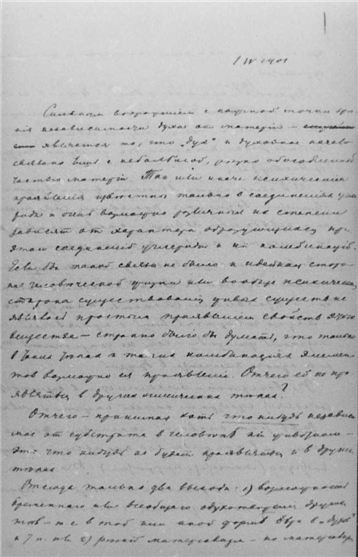 1 IV 1901
Сильным возражением с научной точки зре-
ния независимости духа от материи –
– является то, что „дух" и духовное начало
связано еще с небольшой, резко обособленной
частью материи. Так или иначе психические
проявления известны только в соединениях угле-
рода и очень возможно различного их степени
зависят от характера образующихся при
этом соединений углерода и их комбинаций.
Если бы такой связи не было и идейная сторо-
на человеческой жизни или вообще психическая
сторона существований живых существ не
являлась простым проявлением свойств этого
вещества – странно было бы думать, что только
в таких телах и таких комбинациях элемен-
тов возможно ея проявление. Отчего ей не про-
являться в других химических телах?
Отчего – принимая хоть что нибудь независи-
мое от субстрата в человеке или животном –
это что нибудь не будет проявляться и в других
телах.
Отсюда только два выхода: 1) возможность
временного или всеобщего одухотворения других
тел – т е в той или иной форме
и т. п. или 2) резкий материализм – но материализм